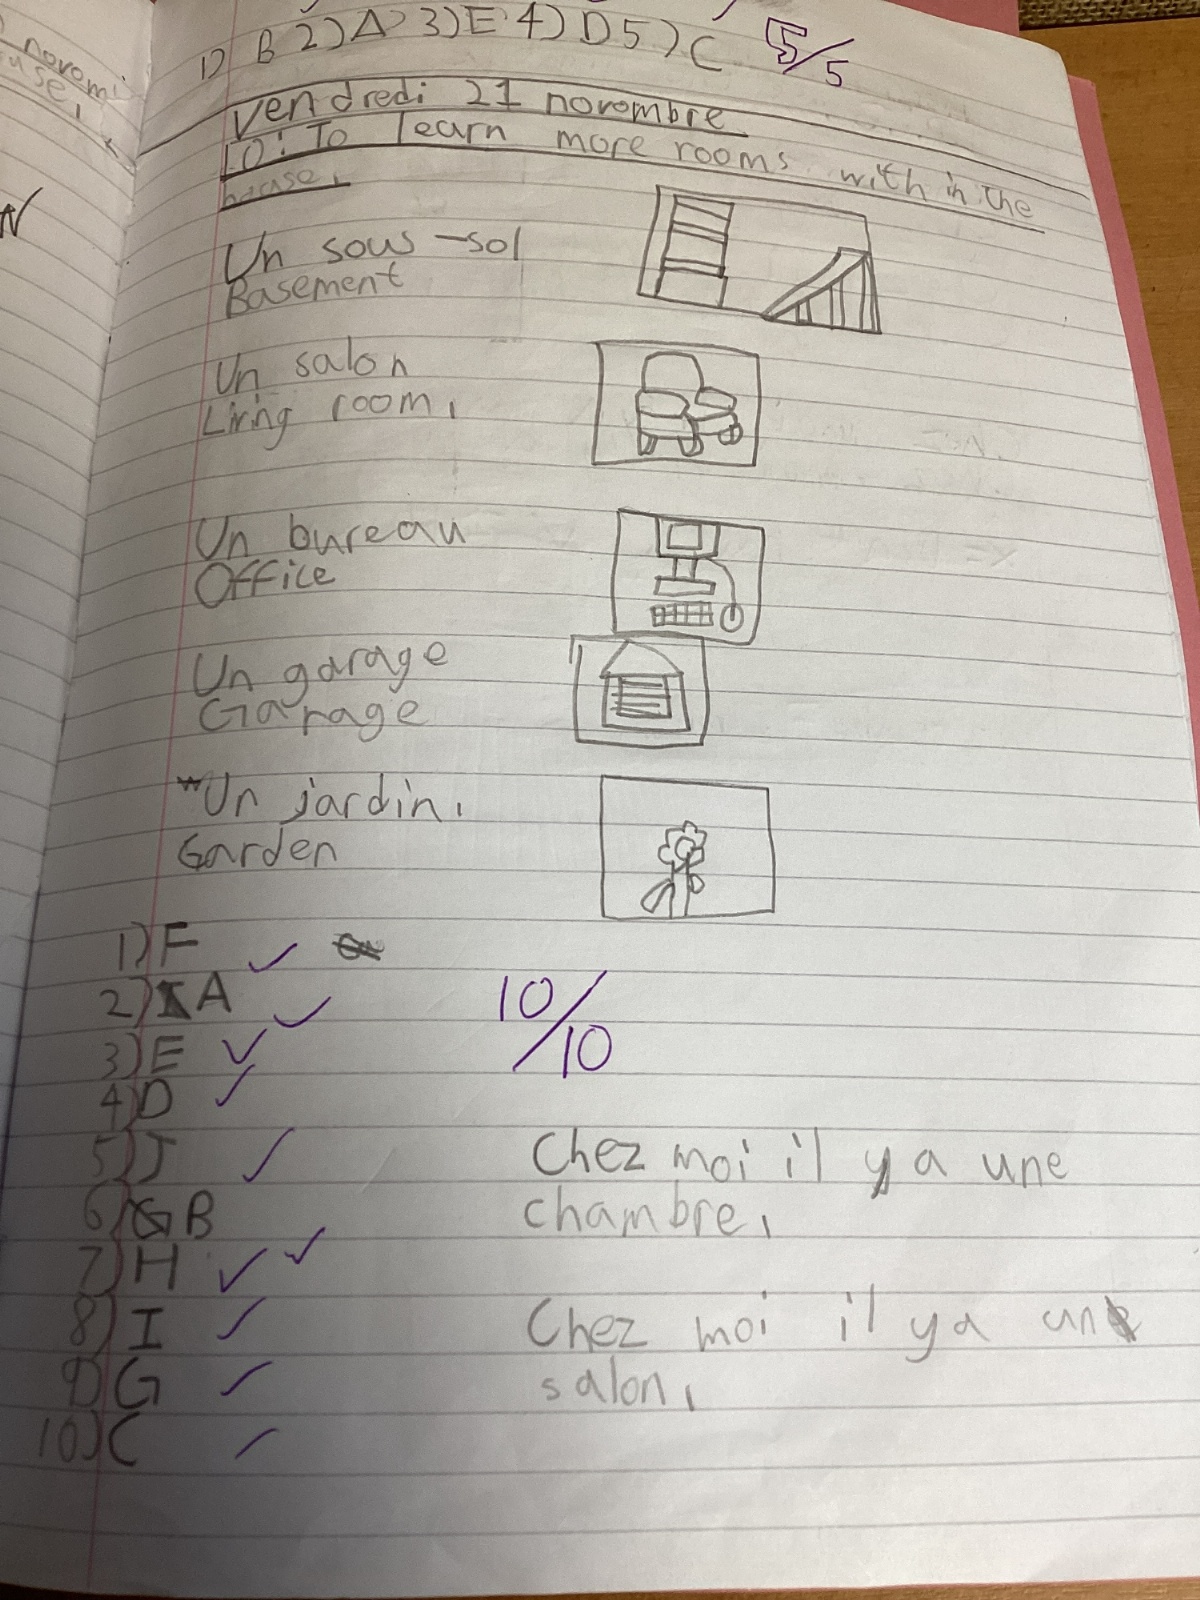 1) B 2) A 3) E 4) D 5) C 5/5
Vendredi 21 novembre
LO: To learn more rooms with in the
house.
Un sous-sol
Basement
Un salon
Living room.
Un bureau
Office
Un garage
Garage
Un jardin.
Garden
1) F
2) A
3) E
4) D
10/10
5) J
6) B
7) H
8) I
9) G
10) C
Chez moi il y a une
chambre.
Chez moi il ya un
salon.